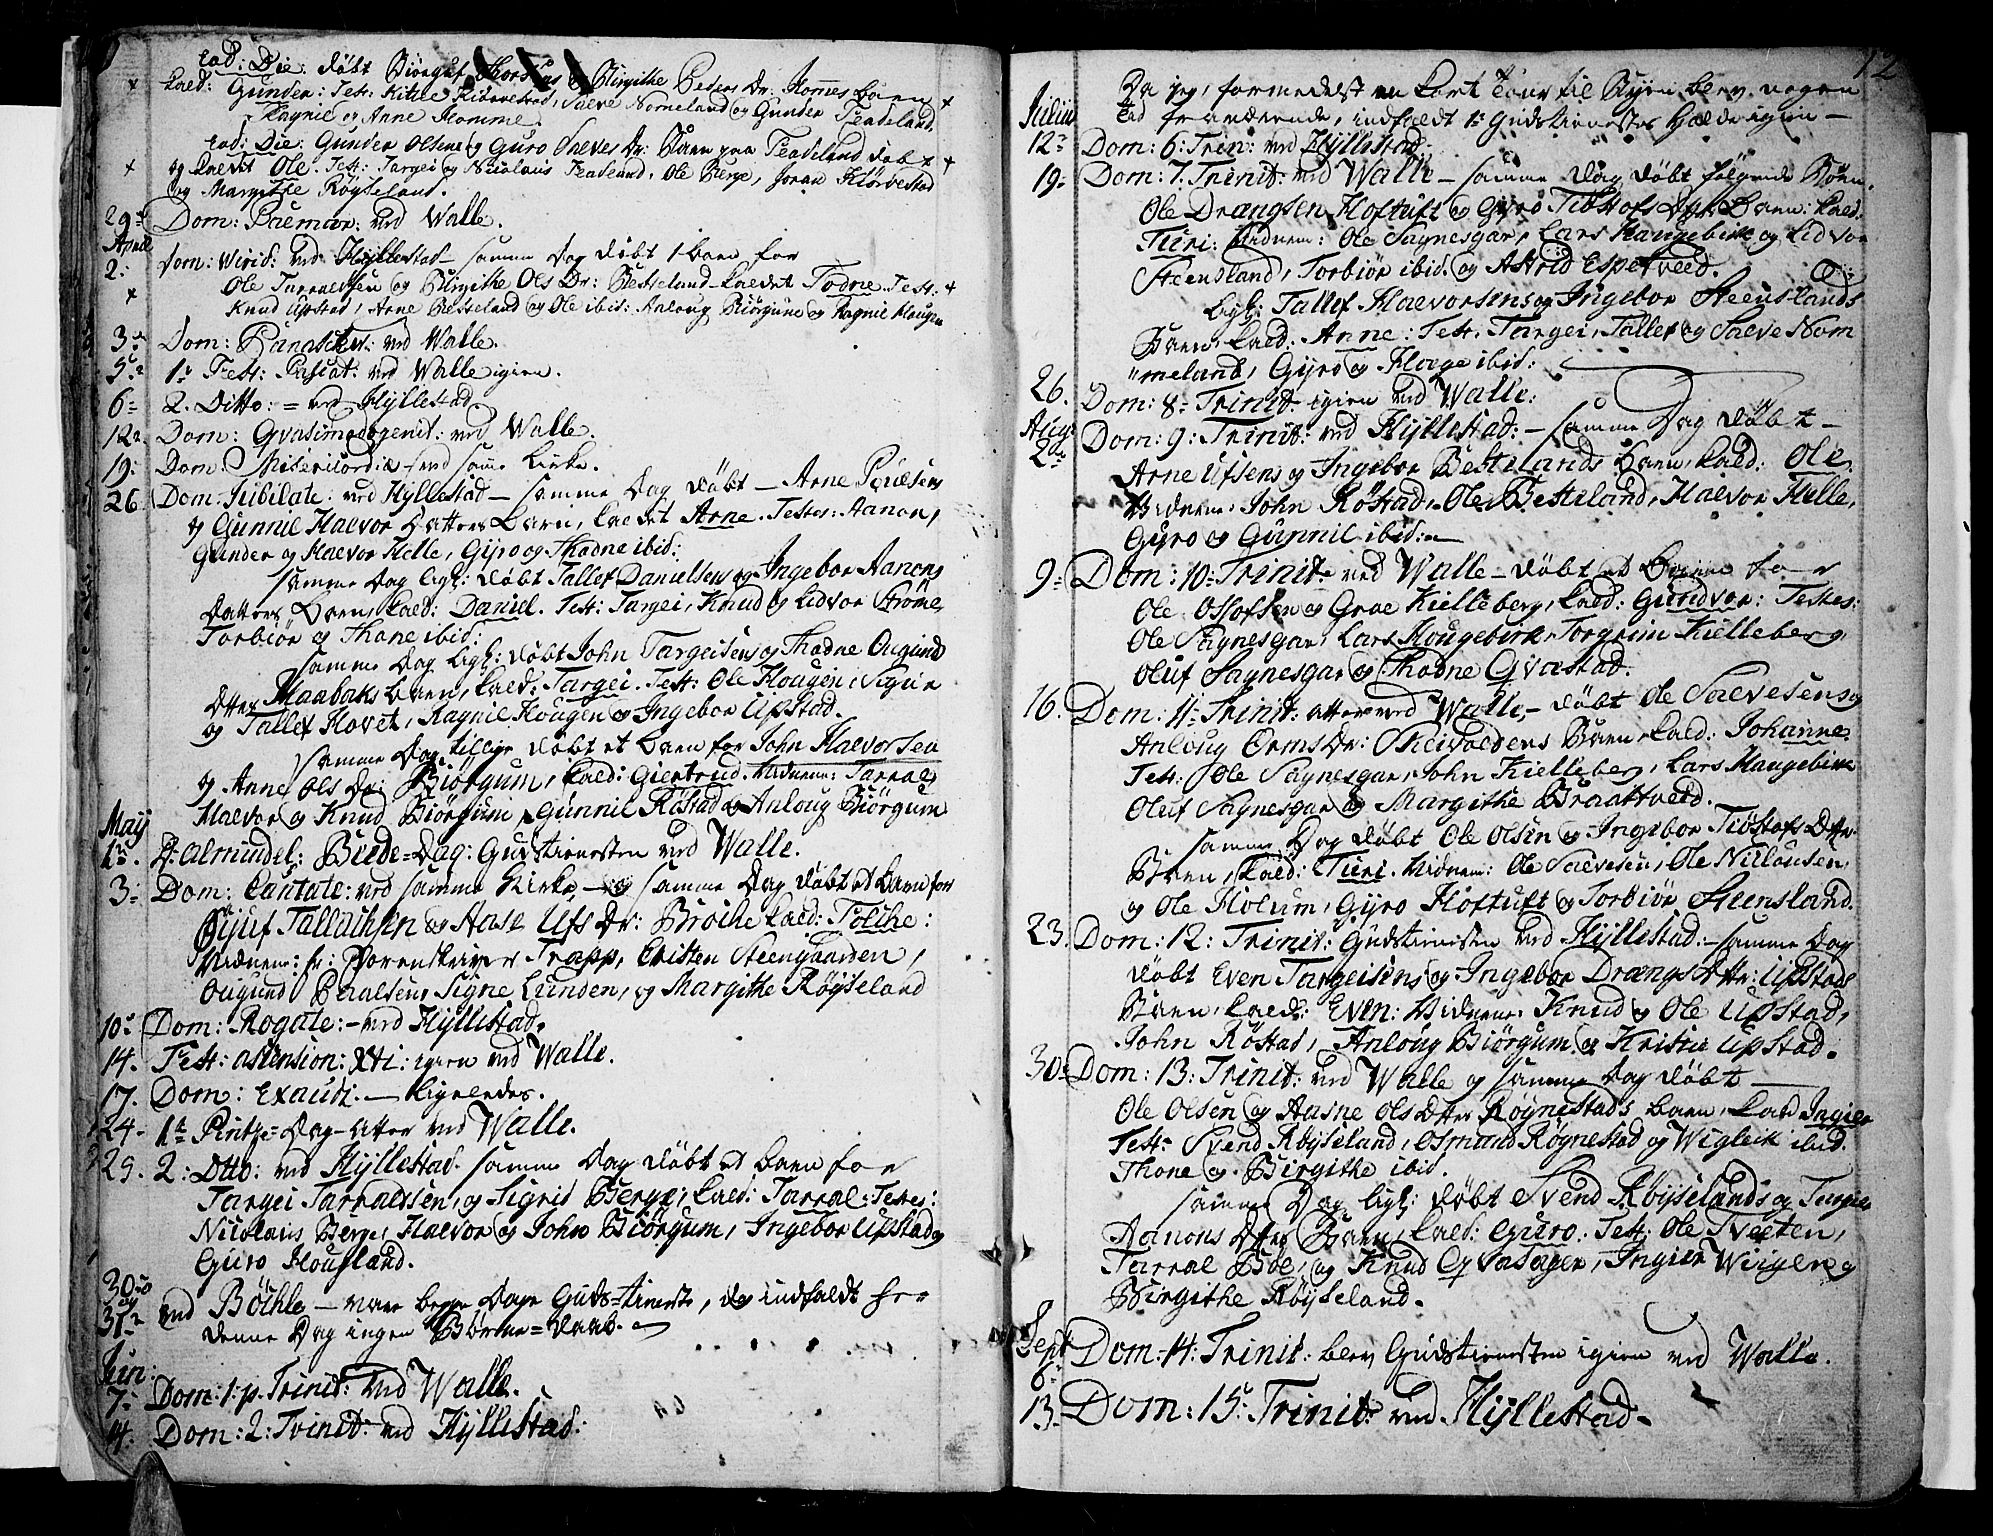 Ead: Die: døbt Biörguf Thorsens og Birgithe Peders Dr: Hommes Barn
kald: Gunder: Test: Kittel Kiörvestad, Saeve Nomeland og Gunder Feadeland,
Ragnil og Anne Homme.
Ead: Die: Gunder Olsens og Guro Saeves Dr: Barn paa Feadeland døbt
og kaldet Ole. Test: Targei og Nicolaus Feadeland, Ole Berge, Joran Kiörvestad
og Margithe Røyseland.
29de Dom: Palmar: ved Walle.
April
2: Dom: Virid: ved Hyllestad samme Dag døbt 1 barn for
Ole Tarraldsen og Birgithe Ols Dr: Besseland kaldet Todne. Test:
Knud Upstad, Arne Besseland og Ole ibid: Anloug Biörgum og Ragnil Hougen
3: Dom: ved Walle.
5te 1te Fest: Pascat: ved Walle igien.
6= 2. Ditto: = ved Hyllestad
12te Dom: Qvasimodogenit: ved Walle.
19: Dom: Misericordiæ ved samme Kirke.
26 Dom: Jubilate: ved Hyllestad - samme Dag døbt - Arne Poulsens
og Gunnil Haevor Datters Barn, kaldet Arne. Testes: Aanon,
Gunder og Haevor Helle, Gyro og Thadne ibid:
samme Dag ligl: døbt Tallef Danielsens og Ingebor Aanons
Datters Barn, kald: Daniel. Test: Targei, Knud og Lidvor Strome,
Torbiör og Thone ibid:
samme Dag ligl: døbt John Targeisens og Thadne Ougund
Dtter Maabaks Barn, kald: Targei. Test: Ole Hougen, Sigur
og Tallef Hovet, Ragnil Hougen og Ingebor Upstad.
samme Dag tillige døbt et barn for John Haevorsen
og Anne Ols Dr: Biörgum, kald: Giertrud. Vidnene: Tarral,
Haevor og Knud Biörgum, Gunnil Röstad og Anloug Biörgum
May
1te. D: Almindel: Bede=Dag: Gudstienesten ved Walle.
3: Dom: Cantate: ved samme Kirke - og samme Dag døbt et Barn for
Gjuf Tallachsen og Aase Ufs Dr: Broche kald: Folche:
Vidnene: Hr: Sorenskriver Trapp, Cristen Steengaarden,
Ougund Paalsen, Signe Lunden, og Margithe Røyseland
10de Dom: Rogate: - ved Hyllestad.
14. Fest: Ascension: Xti: igien ved Walle.
17. Dom: Exaudi. - ligeledes.
24- 1te Pintze=Dag - atter ved Walle.
25. 2: Dtto: ved Hyllestad. samme Dag døbt et barn for
Targei Tarraldsen, og Sigrid Berge, kald: Tarral: Testes:
Nicolaus Berge, Haevor og John Biörgum, Ingebor Upstad og
Guro Housland.
30te og
31te ved Böchle - vare begge Dage Guds=tieneste, dog indfaldt her
denne Dag ingen Börne=Daab.
Jun:
7: Dom: 1: p. Trinit: ved Walle.
14. Dom: 2: Trinit: ved Hyllestad:
12
Da jeg, formedelst en kort Tour til Byen blev nogen
Julii Tid fraværende, indfaldt 1te Gudstienestes Holdr igien -
12te Dom: 6: Trin: ved Hyllestad.
19= Dom: 7. Trinit: ved Walle - samme Dag døbt følgende Börn.
Ole Drængsen Hoftuft og Gyro Tiöstofs Dtr Barn: kald:
Turi: Vidnene: Ole Saynesgar, Lars Haugebirk og Lidvor
Steensland, Torbiör ibid. og Astrid Espetveed.
ligl: Tallef Haevorsens og Ingebor Steenslands
Barn, kald: Anne: Test: Targei, Tallef og Saeve Nom
=meland, Gyro og Hoege ibid:
26. Dom: 8= Trinit: igien ved Walle.
Aug:
2de Dom: 9: Trinit: ved Hyllestad: - samme Dag døbt -
Arne Ufsens og Ingebor Bestelands Barn, kald: Ole.
Vidnene: John Röstad, Ole Besteland, Haevor Helle,
Gyro og Gunnil ibid: -
9= Dom: 10= Trinit: ved Walle - døbt et Barn for
Ole Ossofsen og Groe Kielleberg, kald: Gundvor: Testes:
Ole Saynesgar, Lars Hougebirk Torgrim Kielleberg
Oluf Saynesgar og Thadne Qvæstad.
16. Dom: 11= Trinit: atter ved Walle, - døbt Ole Saevesens og
Anloug Orms Dr: Skeivoldens Barn, kald: Johanne.
Test: Ole Saynesgar, John Kielleberg, Lars Haugebirk
Oluf Saynesgar og Margithe Braattveid.
samme Dag døbt Ole Olsen og Ingebor Tiöstofs Dtter
Barn, kald: Turi. Vidnene: Ole Saevesen, Ole Nielousen
og Ole Holum, Gyro Hoftuft og Torbiör Steensland.
23. Dom: 12: Trinit: Gudstienesten ved Hyllestad: - samme Dag
døbt Even Targeisens og Ingebor Drængs Dttr: Upstads
Barn, kald: Even: Vidnene: Knud og Ole Upstad,
John Röstad, Anloug Biörgum og Kristie Upstad.
30= Dom: 13: Trinit: ved Walle og samme Dag døbt
Ole Olsen og Aasne Ols Dtter Røynestads barn, kald Ingier
Test= Svend Røyseland, Osmund Røynestad og Wigleik ibid.
Thone og Birgithe ibid.
samme Dag ligl: døbt Svend Røyselands og Targier
Aanons Dtter Barn, kald: Guro: Test: Ole Sveeten,
Tarral Böe, og Knud Qvasager, Ingier Wiigen og
Birgithe Røyseland.
Sept
6= Dom: 14: Trinit: blev Gudstienesten igien ved Walle.
13. Dom: 15: Trinit: ved Hyllestad.